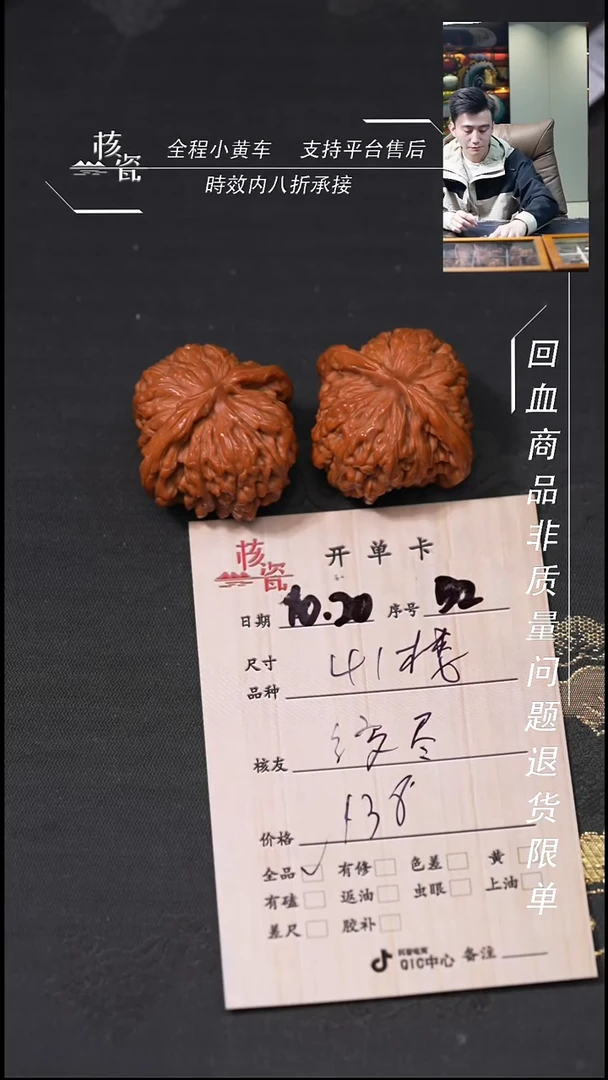 核瓷
全程小黄车 支持平台售后
時效内八折承接
回血商品非质量问题退货限单
核瓷 开单卡
日期 10.20 序号 52
尺寸 41楼
品种
核友
价格 138
全品 有修 色差 黄
有磕 返油 虫眼 上油
差尺 胶补
抖音电商
QIC中心 备注